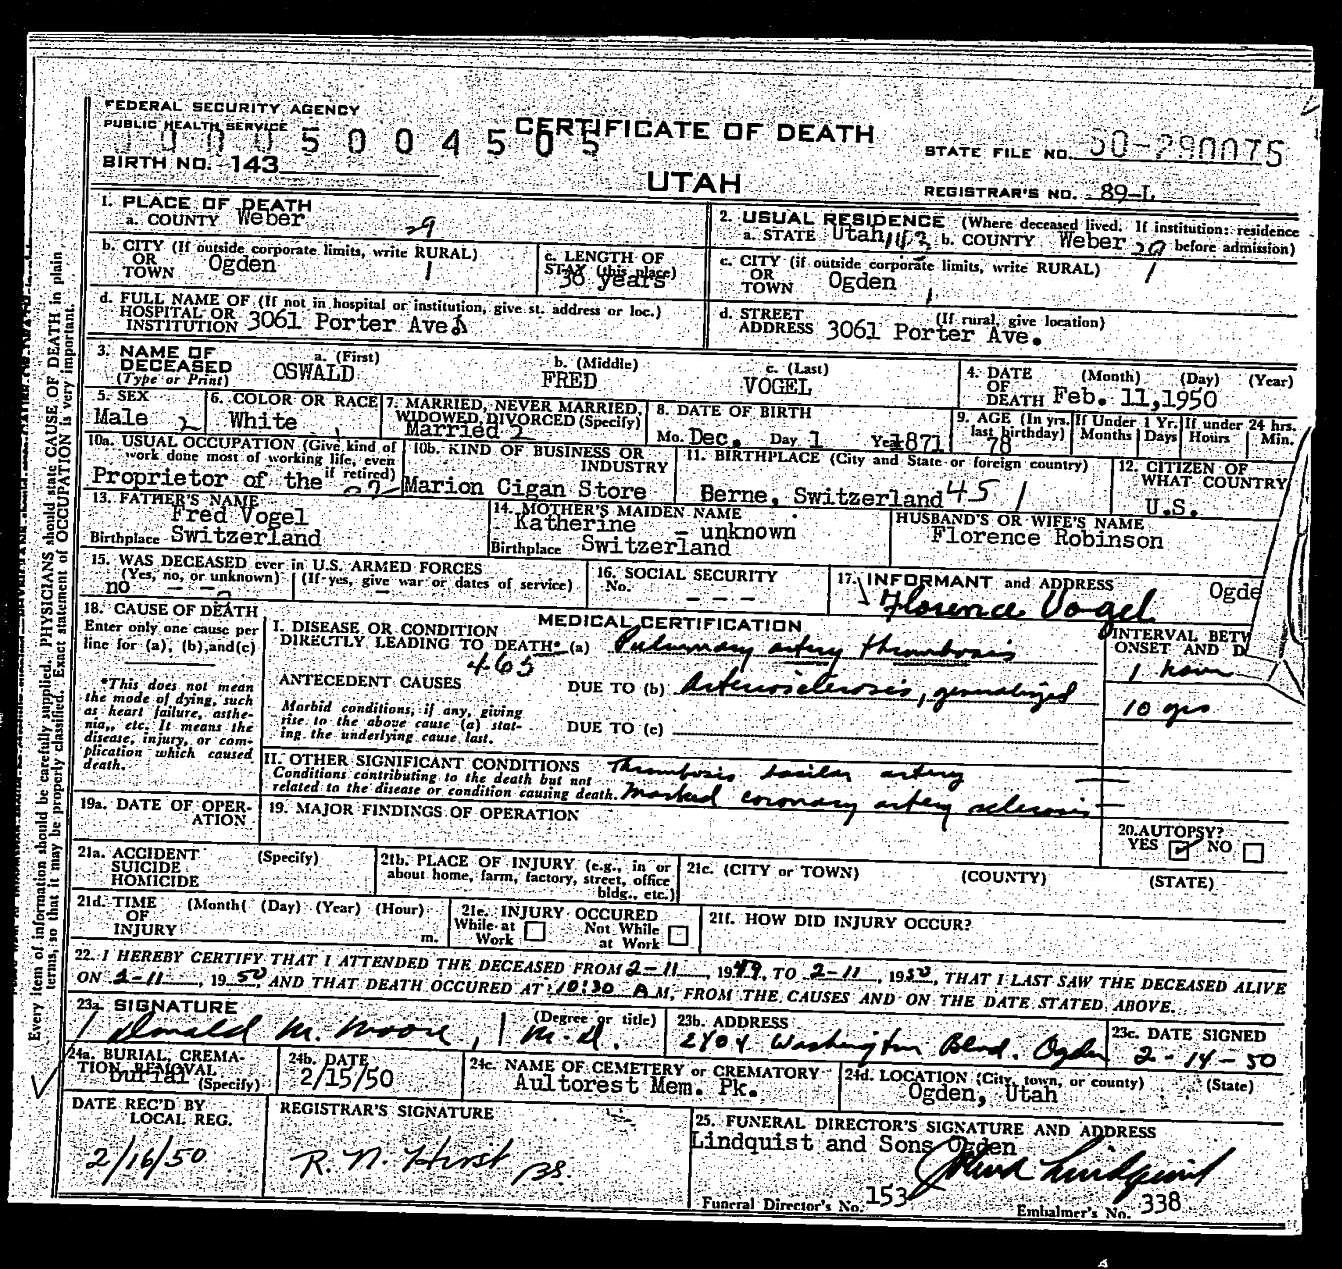 FEDERAL SECURITY AGENCY
PUBLIC HEALTH SERVICE
CERTIFICATE OF DEATH
UTAH
BIRTH NO. 143
STATE FILE NO. 50-290075
REGISTRAR'S NO. 89-L
1. PLACE OF DEATH
a. COUNTY Weber 29
b. CITY (If outside corporate limits, write RURAL)
OR
TOWN Ogden 1
c. LENGTH OF
STAY (this place)
36 years
d. FULL NAME OF (If not in hospital or institution, give st. address or loc.)
HOSPITAL OR
INSTITUTION 3061 Porter Ave
2. USUAL RESIDENCE (Where deceased lived. If institution: residence
a. STATE Utah 143 b. COUNTY Weber 29 before admission)
c. CITY (if outside corporate limits, write RURAL)
OR
TOWN Ogden 1
d. STREET (If rural, give location)
ADDRESS 3061 Porter Ave.
3. NAME OF DECEASED
(Type or Print)
a. (First) b. (Middle) c. (Last)
OSWALD FRED VOGEL
4. DATE OF DEATH (Month) (Day) (Year)
Feb. 11,1950
5. SEX
Male 2
6. COLOR OR RACE
White 1
7. MARRIED, NEVER MARRIED,
WIDOWED, DIVORCED (Specify)
Married 2
8. DATE OF BIRTH
Mo. Dec. Day 1 Year 1871
9. AGE (In yrs. last birthday)
78
If Under 1 Yr.
Months Days
If under 24 hrs.
Hours Min.
10a. USUAL OCCUPATION (Give kind of
work done most of working life, even
if retired)
Proprietor of the
10b. KIND OF BUSINESS OR
INDUSTRY
Marion Cigan Store
11. BIRTHPLACE (City and State or foreign country)
Berne, Switzerland 45 1
12. CITIZEN OF
WHAT COUNTRY
U.S.
13. FATHER'S NAME
Fred Vogel
Birthplace Switzerland
14. MOTHER'S MAIDEN NAME
Katherine - unknown
Birthplace Switzerland
HUSBAND'S OR WIFE'S NAME
Florence Robinson
15. WAS DECEASED ever in U.S. ARMED FORCES
(Yes, no, or unknown) (If yes, give war or dates of service)
no - - -
16. SOCIAL SECURITY
No.
- - -
17. INFORMANT and ADDRESS Ogde
Florence Vogel
18. CAUSE OF DEATH
Enter only one cause per
line for (a), (b), and (c)
*This does not mean
the mode of dying, such
as heart failure, asthe-
nia,, etc. It means the
disease, injury, or com-
plication which caused
death.
MEDICAL CERTIFICATION
I. DISEASE OR CONDITION
DIRECTLY LEADING TO DEATH* (a) Pulmonary artery thrombosis
465
ANTECEDENT CAUSES DUE TO (b) Arteriosclerosis, generalized
Morbid conditions, if any, giving
rise to the above cause (a) stat-
ing the underlying cause last.
DUE TO (c)
INTERVAL BETW
ONSET AND D
1 hour
10 yrs
II. OTHER SIGNIFICANT CONDITIONS Thrombosis basilar artery
Conditions contributing to the death but not
related to the disease or condition causing death. Marked coronary artery sclerosis
19a. DATE OF OPER-
ATION
19. MAJOR FINDINGS OF OPERATION
20. AUTOPSY?
YES NO
21a. ACCIDENT (Specify)
SUICIDE
HOMICIDE
21b. PLACE OF INJURY (e.g., in or
about home, farm, factory, street, office
bldg., etc.)
21c. (CITY or TOWN) (COUNTY) (STATE)
21d. TIME (Month( (Day) (Year) (Hour)
OF
INJURY m.
21e. INJURY OCCURED
While at Work
Not While at Work
21f. HOW DID INJURY OCCUR?
22. I HEREBY CERTIFY THAT I ATTENDED THE DECEASED FROM 2-11, 1949, TO 2-11, 1950, THAT I LAST SAW THE DECEASED ALIVE
ON 2-11, 1950, AND THAT DEATH OCCURED AT 10:30 A M, FROM THE CAUSES AND ON THE DATE STATED ABOVE.
23a. SIGNATURE (Degree or title)
Donald M. Moore, M.D.
23b. ADDRESS
2404 Washington Blvd. Ogden
23c. DATE SIGNED
2-14-50
24a. BURIAL, CREMA-
TION REMOVAL
burial (Specify)
24b. DATE
2/15/50
24c. NAME OF CEMETERY or CREMATORY
Aultorest Mem. Pk.
24d. LOCATION (City, town, or county) (State)
Ogden, Utah
DATE REC'D BY
LOCAL REG.
2/16/50
REGISTRAR'S SIGNATURE
R. N. Hirst
25. FUNERAL DIRECTOR'S SIGNATURE AND ADDRESS
Lindquist and Sons Ogden
Lindquist
Funeral Director's No. 153
Embalmer's No. 338
Every item of information should be carefully supplied. PHYSICIANS should state CAUSE OF DEATH in plain
terms, so that it may be properly classified. Exact statement of OCCUPATION is very important.